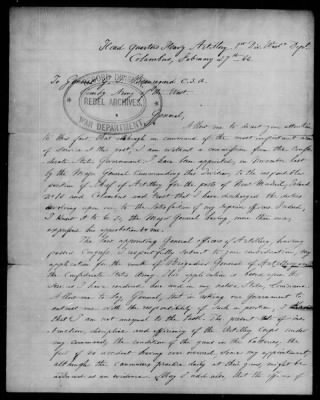 Head Quarters Heavy Artillery 1st Div. West. Dept.
Columbus, February 27th 62
To General G. Beauregard C.S.A.
Army of the West.
RECORD DIVISION
REBEL ARCHIVES,
WAR DEPARTMENT
General,
Allow me to direct your attention
to this fact that although in command of the most important
of service at this post, I am without a commission from the Confe-
derate States Government. I have been appointed, in November last
by the Major General Commanding this Division to the responsible
position of Chief of Artillery for the posts of New Madrid, Island
No 10 and Columbus and trust that I have discharged the duties
devolving upon me, to the satisfaction of my superior officers. Indeed,
I know it to be so, the Major General having more than once,
expressed his approbation to me.
The law appointing General officers of Artillery, having
passed Congress I respectfully submit to your consideration, my
application for the rank of Brigadier General of Artillery in
the Confederate States Army. This application is based upon the
service I have rendered here and in my native State, Louisiana.
Allow me to say General, that in asking our Government to
entrust me with the responsibility of such a position, I
that I am not unequal to the task. The present state of ins-
truction, discipline and efficiency of the Artillery Corps under
my command, the condition of the guns in the batteries, the
fact of no accident having ever occurred, since my appointment
although the cannoneers practice daily at their guns, might be
adduced as an evidence. May I add also, that the office of